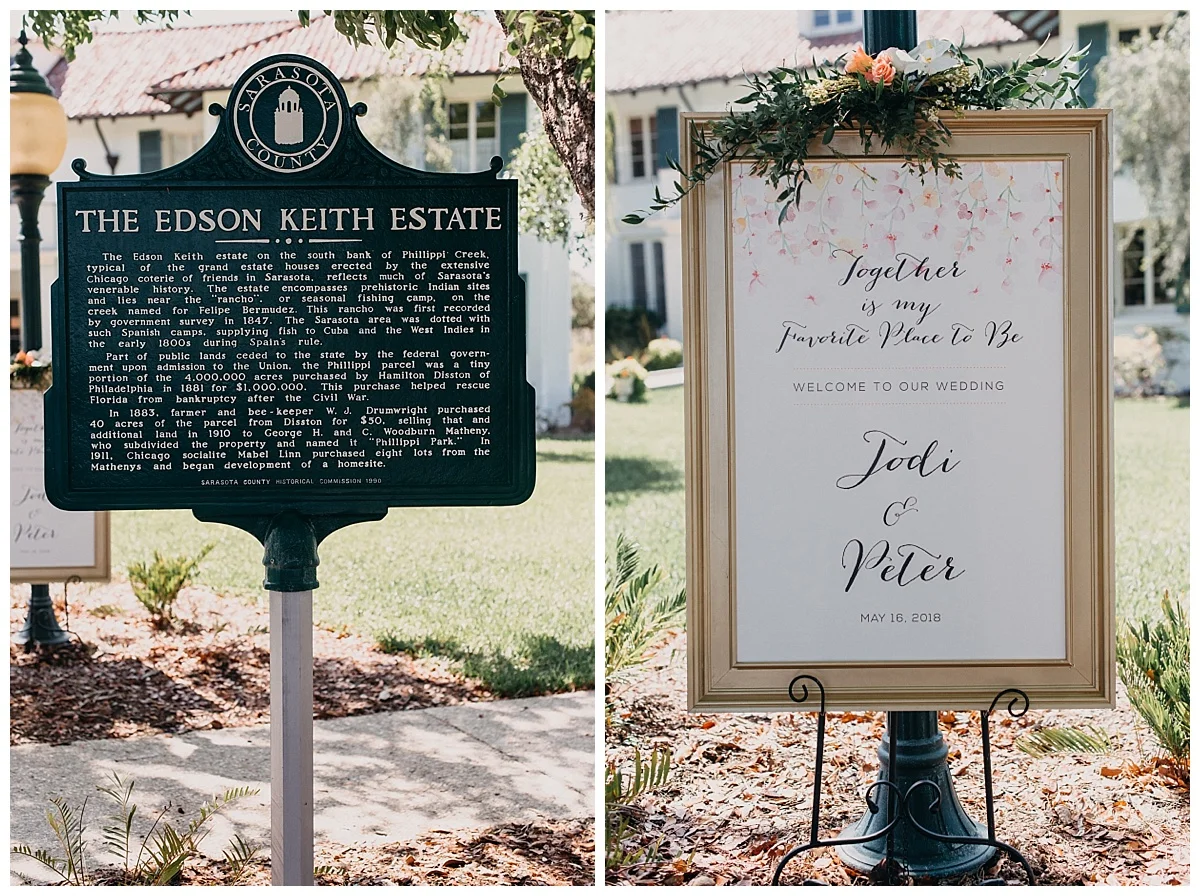 SARASOTA
COUNTY
THE EDSON KEITH ESTATE
The Edson Keith estate on the south bank of Phillippi Creek,
typical of the grand estate houses erected by the extensive
Chicago coterie of friends in Sarasota, reflects much of Sarasota's
venerable history. The estate encompasses prehistoric Indian sites
and lies near the "rancho", or seasonal fishing camp, on the
creek named for Felipe Bermudez. This rancho was first recorded
by government survey in 1847. The Sarasota area was dotted with
such Spanish camps, supplying fish to Cuba and the West Indies in
the early 1800s during Spain's rule.
Part of public lands ceded to the state by the federal govern-
ment upon admission to the Union, the Phillippi parcel was a tiny
portion of the 4,000,000 acres purchased by Hamilton Disston of
Philadelphia in 1881 for $1,000,000. This purchase helped rescue
Florida from bankruptcy after the Civil War.
In 1883, farmer and bee-keeper W. J. Drumwright purchased
40 acres of the parcel from Disston for $50, selling that and
additional land in 1910 to George H. and C. Woodburn Matheny,
who subdivided the property and named it "Phillippi Park." In
1911, Chicago socialite Mabel Linn purchased eight lots from the
Mathenys and began development of a homesite.
SARASOTA COUNTY HISTORICAL COMMISSION 1990
Peter
Together
is my
Favorite Place to Be
WELCOME TO OUR WEDDING
Jodi
&
Peter
MAY 16, 2018